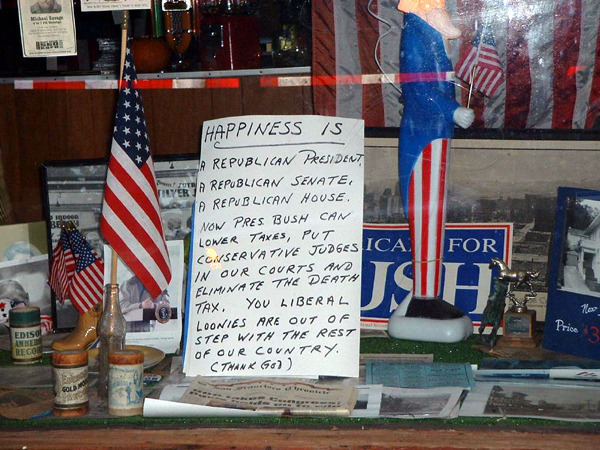 Michael Savage
HAPPINESS IS
A REPUBLICAN PRESIDENT,
A REPUBLICAN SENATE,
A REPUBLICAN HOUSE.
NOW PRES. BUSH CAN
LOWER TAXES, PUT
CONSERVATIVE JUDGES
IN OUR COURTS AND
ELIMINATE THE DEATH
TAX. YOU LIBERAL
LOONIES ARE OUT OF
STEP WITH THE REST
OF OUR COUNTRY.
(THANK GOD)
ICA FOR
USH
EDISON
RECORD
GOLD MOULDED
Chronicle
Price